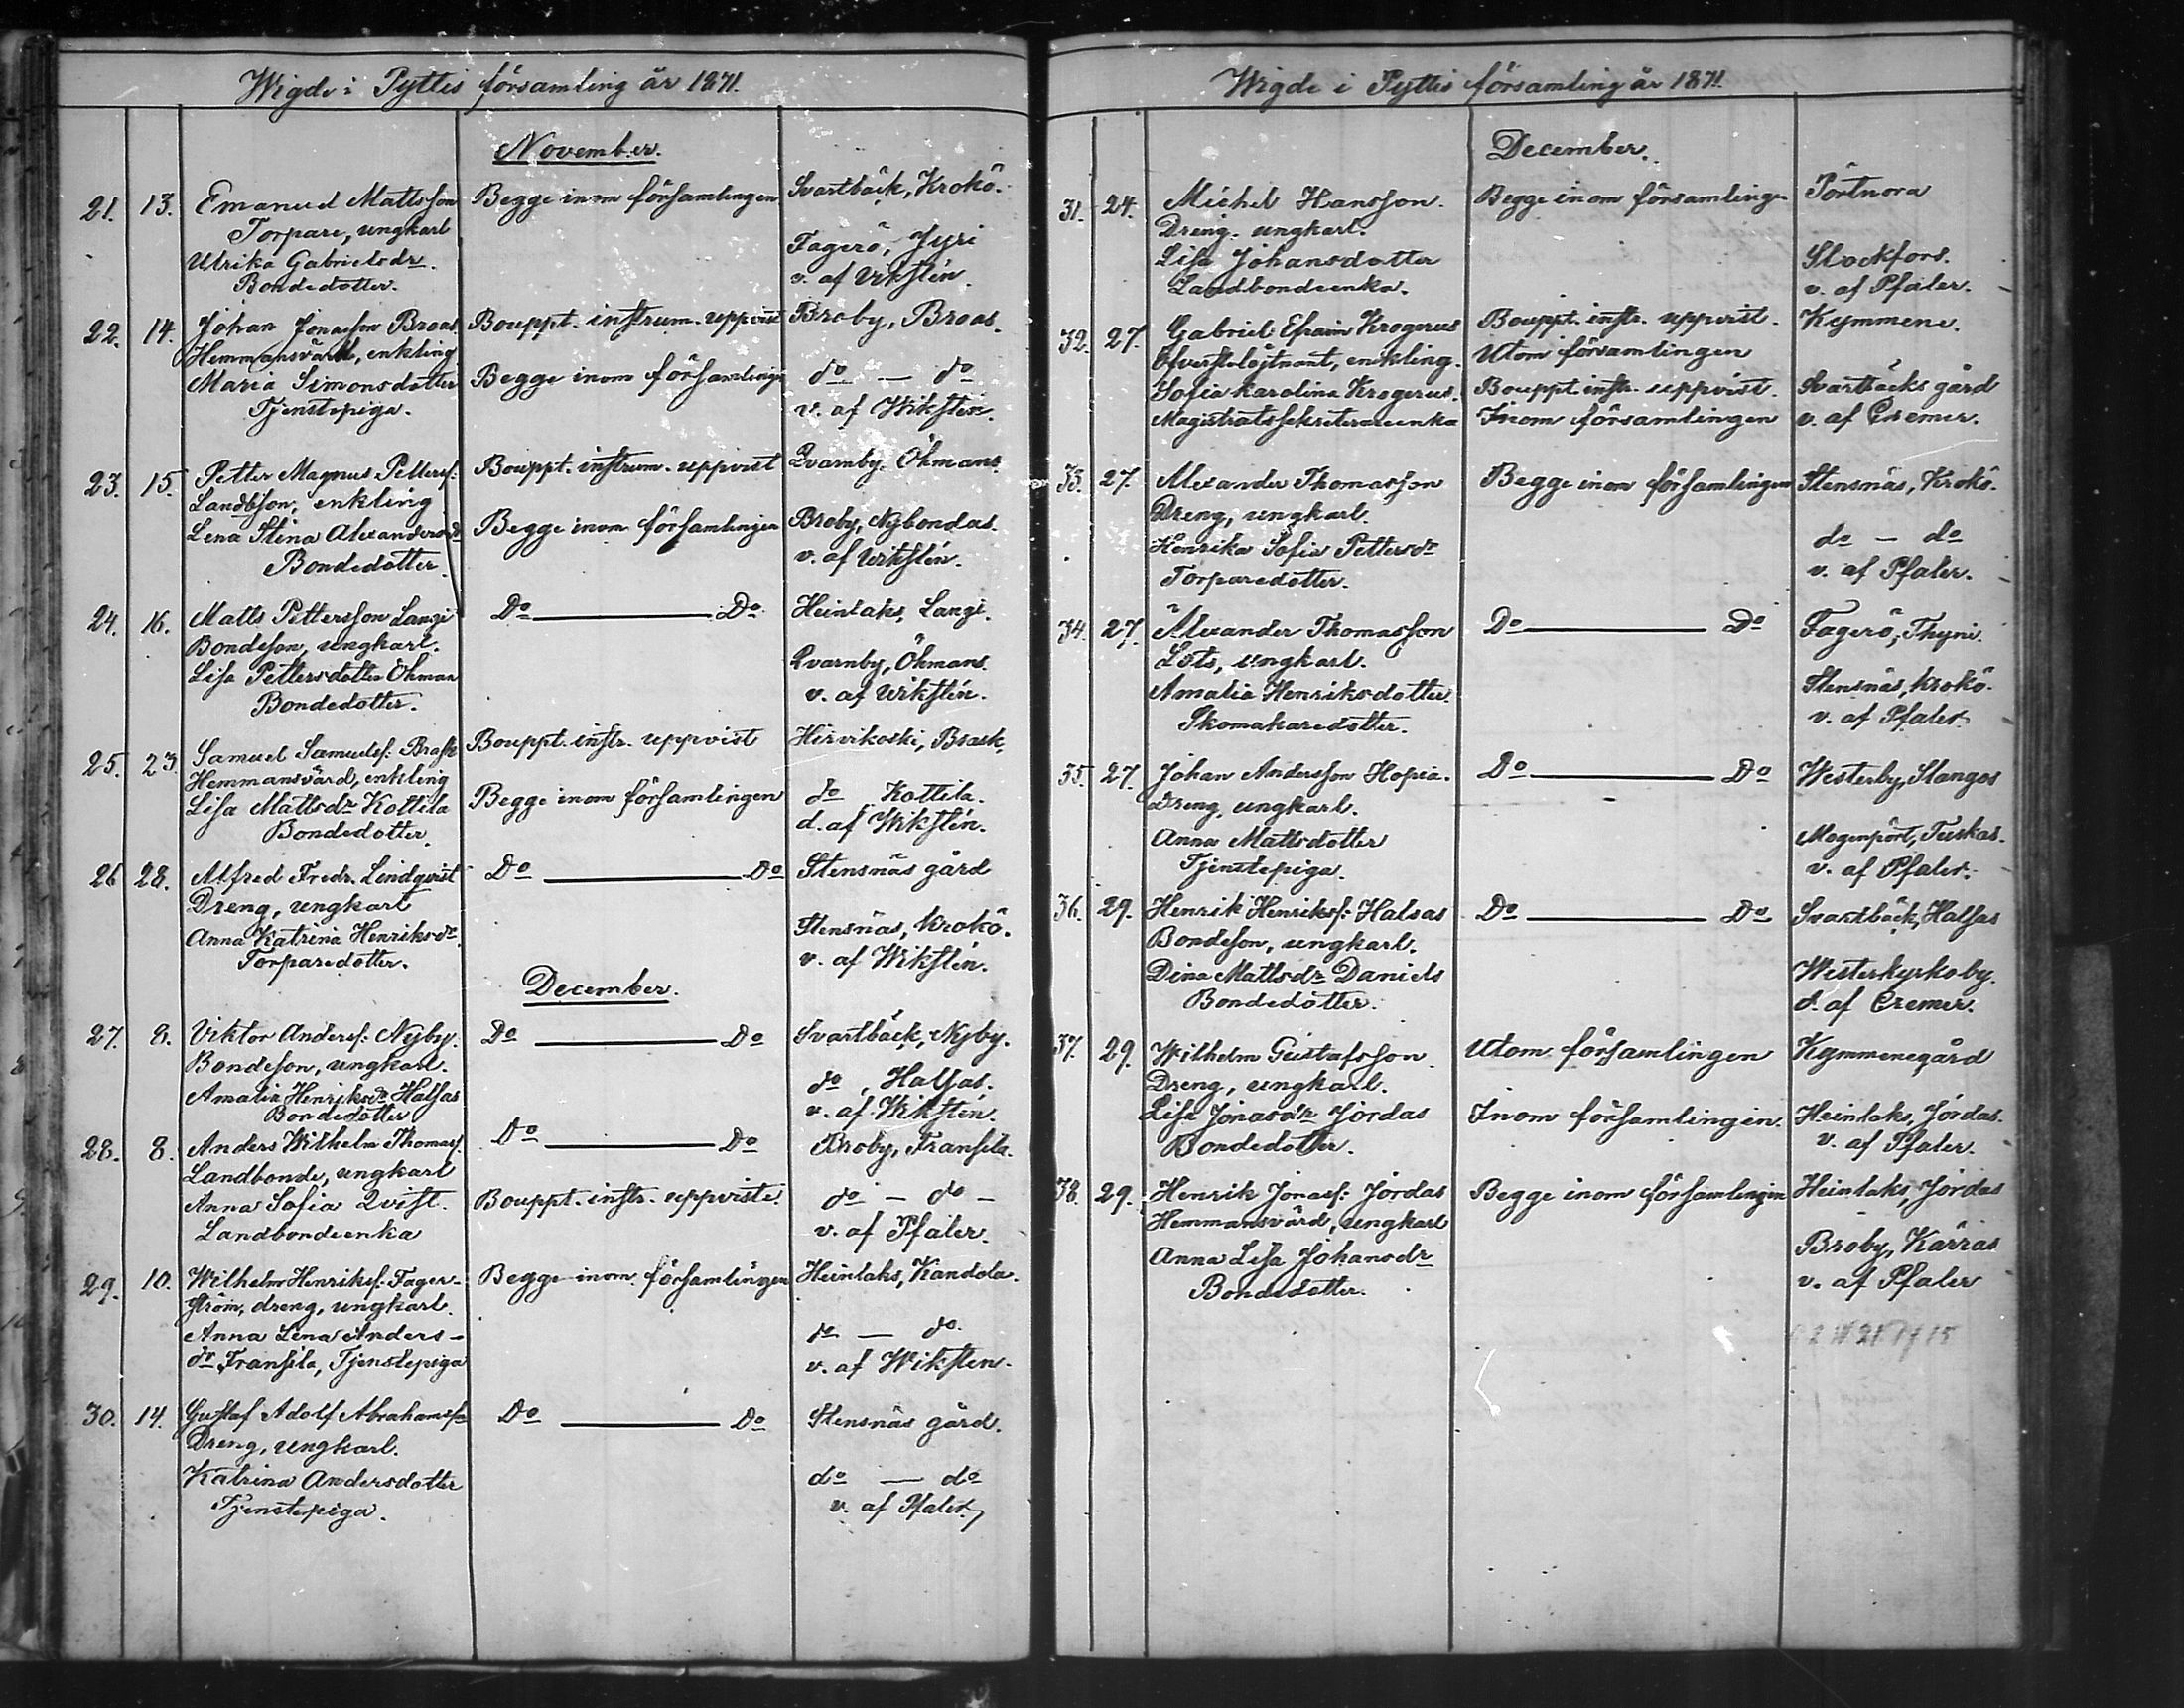 Wigde i Pyttis församling år 1871.
November.
21. 13. Emanuel Mattsson Begge inom församlingen Svartbäck, Krokö.
Torpare, ungkarl
Ulrika Gabrielsdr. Fagerö, Jyri
Bondedotter. v. af Wikstén.
22. 14. Johan Jonasson Broas Bouppt. instrum. uppvist Broby, Broas.
Hemmansvärd, enkling
Maria Simonsdotter Begge inom församlingen do — do
Tjenstepiga. v. af Wikstén.
23. 15. Petter Magnus Petterss: Bouppt. instrum. uppvist Qvarnby. Öhmans.
Landbson, enkling
Lena Stina Alexandersdr Begge inom församlingen Broby, Nybondas.
Bondedotter. v. af Wikstén.
24. 16. Matts Pettersson Langi Do — Do Heinlaks, Langi.
Bondeson, ungkarl.
Lisa Pettersdotter Öhman Qvarnby, Öhmans.
Bondedotter. v. af Wikstén.
25. 23. Samuel Samuelss: Brask Bouppt. instr. uppvist Hirvikoski, Brask,
Hemmansvärd, enkling
Lisa Mattsdr Kottila Begge inom församlingen do Kottila.
Bondedotter. d. af Wikstén.
26 28. Alfred Fredr. Lindqvist Do — Do Stensnäs gård
Dreng, ungkarl
Anna Katrina Henriksdr. Stensnäs, Krokö.
Torparedotter. v. af Wikstén.
December.
27. 8. Viktor Anderss: Nyby. Do — Do Svartbäck, Nyby.
Bondeson, ungkarl.
Amalia Henriksdr Halsas do, Halsas.
Bondedotter v. af Wikstén.
28. 8. Anders Wilhelm Thomass. Do — Do Broby, Fransila.
Landbonde, ungkarl
Anna Sofia Qvist. Bouppt. instr. uppviste. do — do —
Landbondeenka v. af Pfaler.
29. 10. Wilhelm Henrikss: Fager- Begge inom församlingen Heinlaks, Kandola.
ström, dreng, ungkarl.
Anna Lena Anders- do — do.
dr Fransila, Tjenstepiga v. af Wikstén.
30. 14. Gustaf Adolf Abrahamsson Do — Do Stensnäs gård.
Dreng, ungkarl.
Katrina Andersdotter do — do
Tjenstepiga. v. af Pfaler.
Wigde i Pyttis församling år 1871.
December.
31. 24. Michel Hansson. Begge inom församlingen Pörtnora
Dreng. ungkarl.
Lisa Johansdotter Stockfors.
Landbondeenka. v. af Pfaler.
32. 27. Gabriel Efraim Krogerus Bouppt. instr. uppvist. Kymmene.
Öfverstelöjtnant, enkling. Utom församlingen
Sofia Karolina Krogerus. Bouppt. instr. uppvist. Svartbäcks gård
Magistratssekreterareenka Inom församlingen v. af Cremer.
33. 27. Alexander Thomasson Begge inom församlingen Stensnäs, Krokö.
Dreng, ungkarl.
Henrika Sofia Pettersdr do — do
Torparedotter. v. af Pfaler.
34. 27. Alexander Thomasson Do — Do Fagerö, Thyni.
Lots, ungkarl.
Amalia Henriksdotter. Stensnäs, Krokö.
Skomakaredotter. v. af Pfaler.
35. 27. Johan Andersson Hopia. Do — Do Westerby, Stangos
Dreng, ungkarl.
Anna Mattsdotter Mogenpört, Tuskas.
Tjenstepiga. v. af Pfaler.
36. 29. Henrik Henrikss: Halsas Do — Do Svartbäck, Halsas
Bondeson, ungkarl.
Dina Mattsdr Daniels Westerkyrkoby.
Bondedotter. d. af Cremer.
37. 29. Wilhelm Gustafsson Utom församlingen Kymmenegård
Dreng, ungkarl.
Lisa Jonasdr Jordas Inom församlingen. Heinlaks, Jordas.
Bondedotter. v. af Pfaler.
38. 29. Henrik Jonass: Jordas Begge inom församlingen Heinlaks, Jordas
Hemmansvärd, ungkarl
Anna Lisa Johansdr Broby, Kärras
Bondedotter. v. af Pfaler